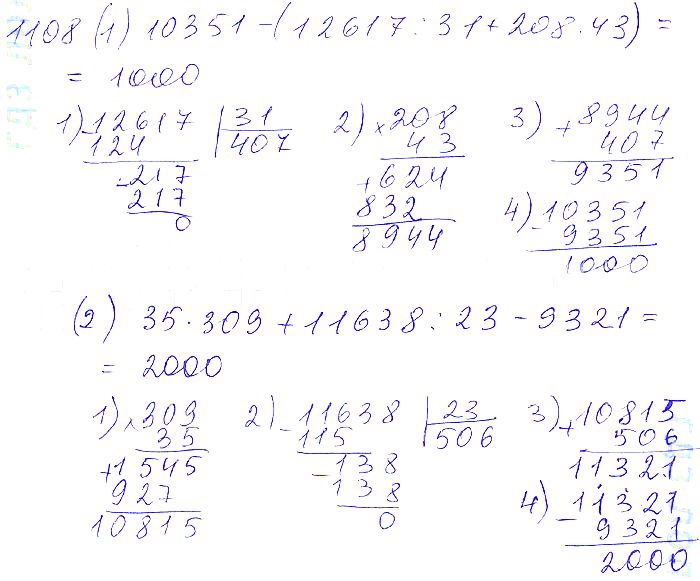 1108 (1) 10351 - (12617 : 31 + 208 · 43) =
= 1000
1) - 12617 | 31
124 407
- 217
217
0
2) × 208
43
+ 624
832
8944
3) + 8944
407
9351
4) - 10351
9351
1000
(2) 35 · 309 + 11638 : 23 - 9321 =
= 2000
1) × 309
35
+ 1545
927
10815
2) - 11638 | 23
115 506
- 138
138
0
3) + 10815
506
11321
4) - 11321
9321
2000